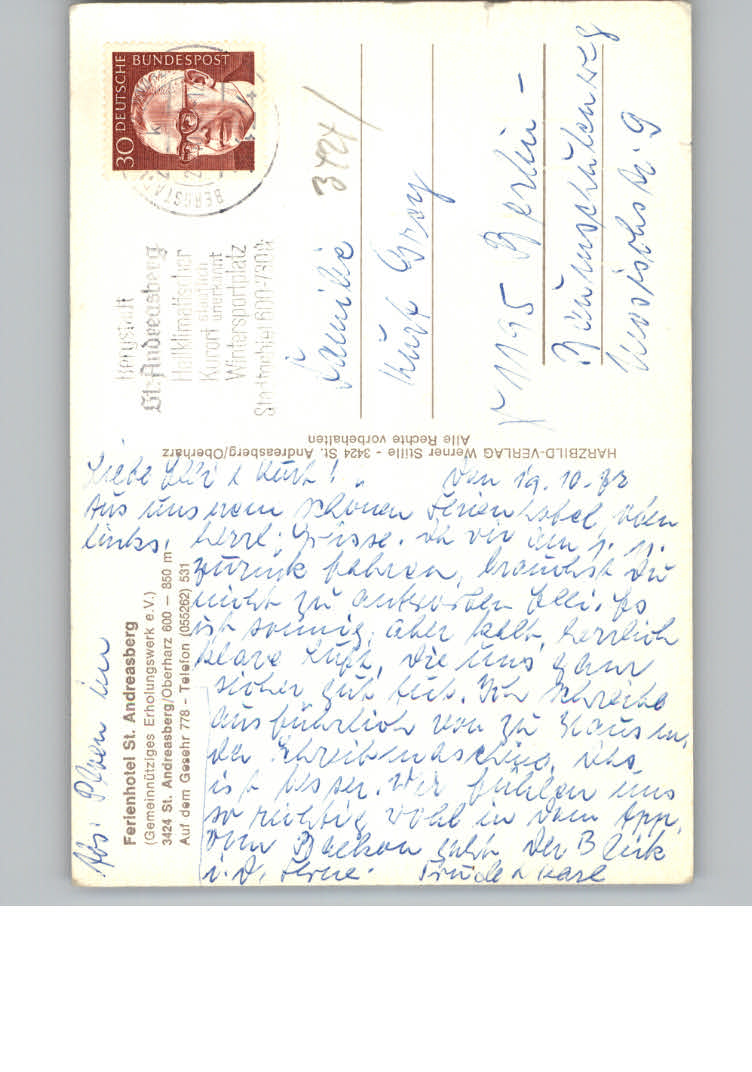 Liebe Elli & Kurt! den 19.10.72
Aus unserem schönen Ferienhotel, oben
links, herzl. Grüsse. Da wir am 1.11.
zurück fahren, brauchst Du
nicht zu antworten Elli. Es
ist sonnig, aber kalt, herrlich
klare Luft, die uns ganz
sicher gut tut. Ich schreibe
ausführlich von zu Haus m.
der Schreibmaschine, das
ist besser. Wir fühlen uns
so richtig wohl in dem App.
vom Balkon geht der Blick
i. d. Ferne. Trude & Karl
Abs:
Ferienhotel St. Andreasberg
(Gemeinnütziges Erholungswerk e.V.)
3424 St. Andreasberg/Oberharz 600 – 850 m
Auf dem Gesehr 778 - Telefon (055262) 531
HARZBILD-VERLAG Werner Stille - 3424 St. Andreasberg/Oberharz
Alle Rechte vorbehalten
30 DEUTSCHE BUNDESPOST
Bergstadt
St. Andreasberg
Heilklimatischer
Kurort staatlich anerkannt
Wintersportplatz
3424
Familie
Kurt
1195 Berlin -
Baumschulenweg